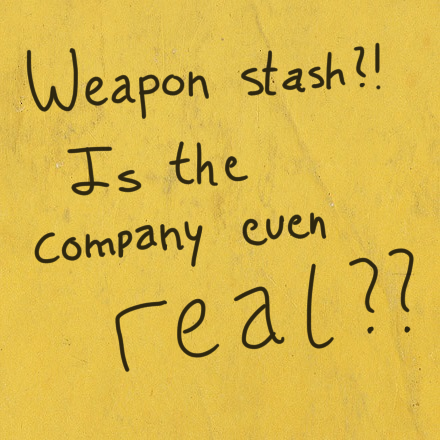 Weapon stash?!
Is the
company even
real??